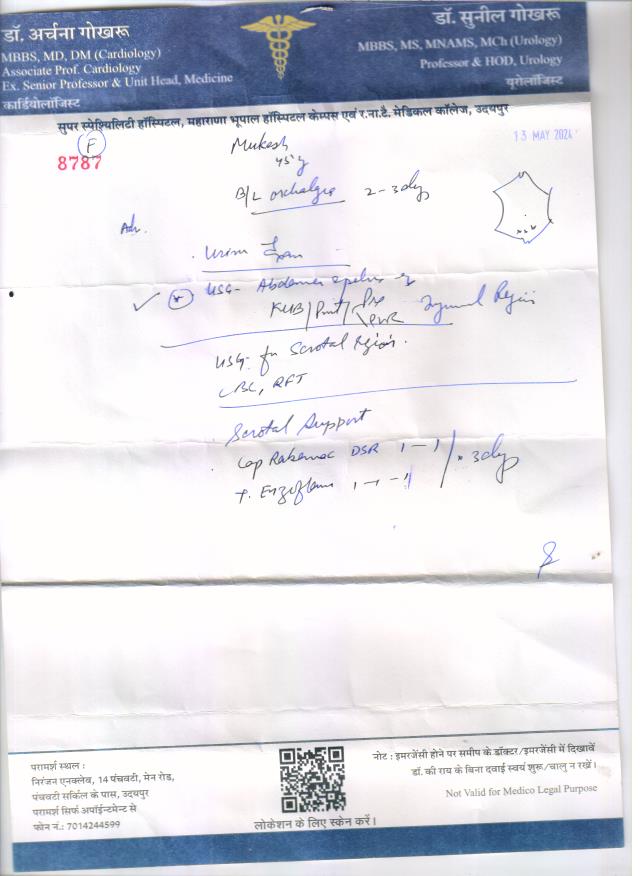 डॉ. अर्चना गोखरू
MBBS, MD, DM (Cardiology)
Associate Prof. Cardiology
Ex. Senior Professor & Unit Head, Medicine
कार्डियोलॉजिस्ट
डॉ. सुनील गोखरू
MBBS, MS, MNAMS, MCh (Urology)
Professor & HOD, Urology
यूरोलॉजिस्ट
सुपर स्पेश्यिलिटी हॉस्पिटल, महाराणा भूपाल हॉस्पिटल केम्पस एवं र.ना.टै. मेडिकल कॉलेज, उदयपुर
F
8787
13 MAY 2024
Mukesh
45 y
B/L orchalgia 2-3 dys
Adv.
Urine
USG- Abdomen & pelvis
KUB/Prost/Pre
PVR
Region
USG for Scrotal Region.
CBC, RFT
Scrotal Support
Cap Rabemac DSR 1-1
T. Enzoflam 1-1-1
x 3 dys
परामर्श स्थल :
निरंजन एनक्लेव, 14 पंचवटी, मेन रोड,
पंचवटी सर्किल के पास, उदयपुर
परामर्श सिर्फ अपॉईन्टमेन्ट से
फोन नं.: 7014244599
लोकेशन के लिए स्केन करें।
नोट : इमरजेंसी होने पर समीप के डॉक्टर/इमरजेंसी में दिखावें
डॉ. की राय के बिना दवाई स्वयं शुरू/चालु न रखें।
Not Valid for Medico Legal Purpose